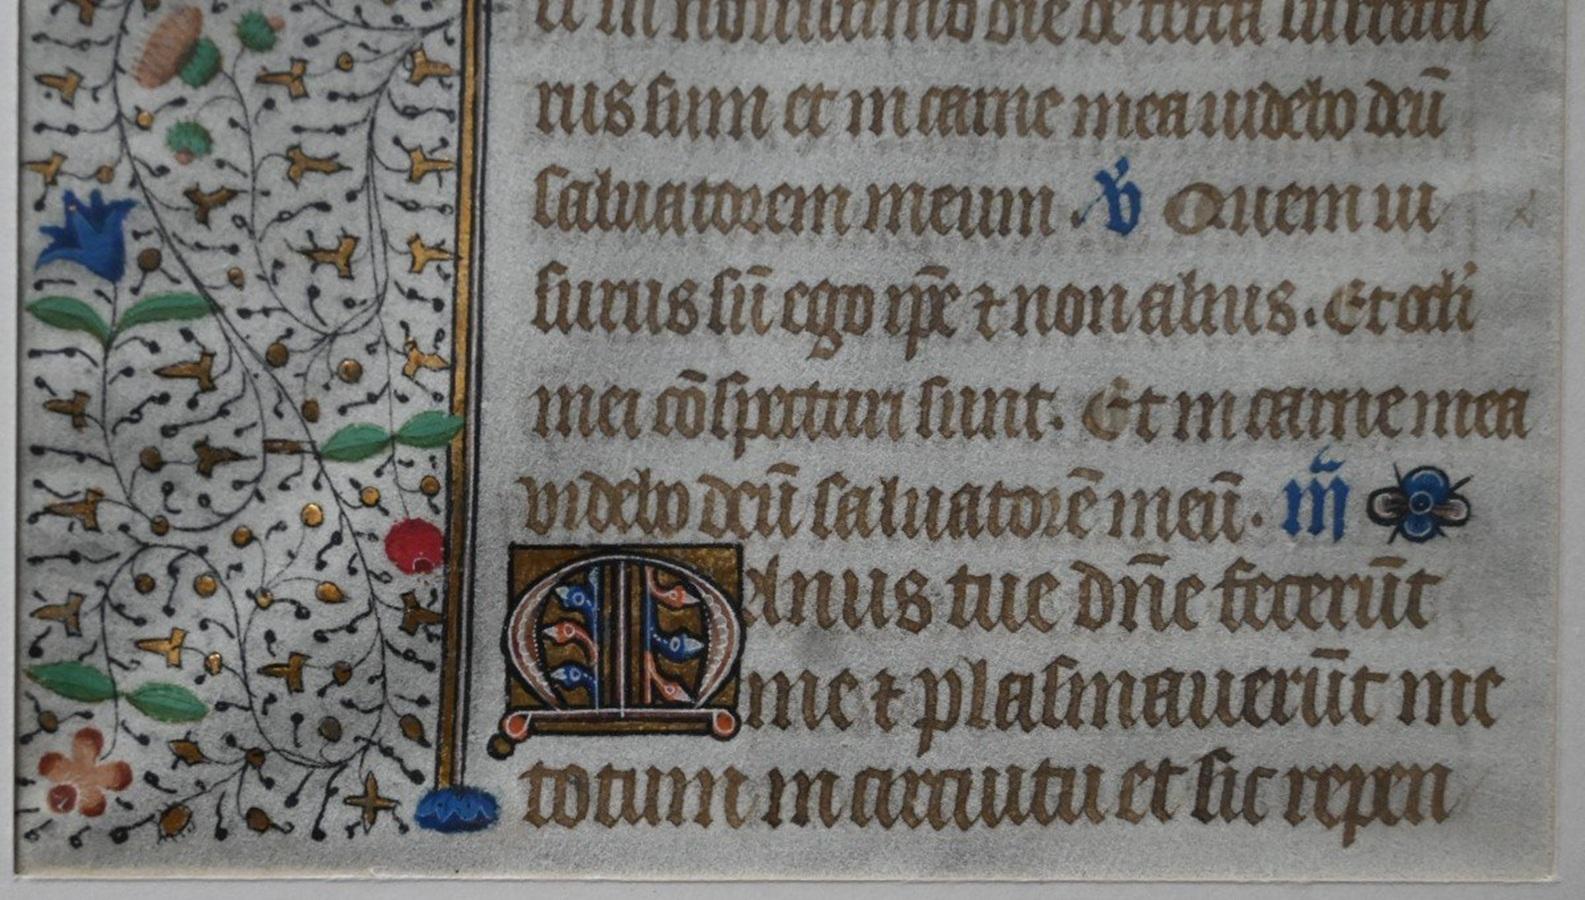 et in novissimo die de terra surrectu
rus sum et in carne mea videbo deū
salvatorem meum. v̄ Quem vi
surus sū ego ip̄e ⁊ non alius. Et oculi
mei cōspecturi sunt. Et in carne mea
videbo deū salvatorē meū. iii
Manus tue dn̄e fecerūt
me ⁊ plasmaverūt me
totum in circuitu et sic repen